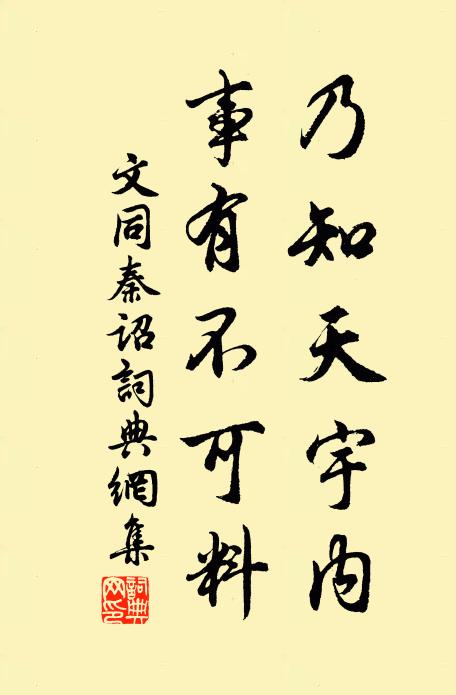 乃知天宇内
事有不可料
文同秦詔詞典網集
詞典網印